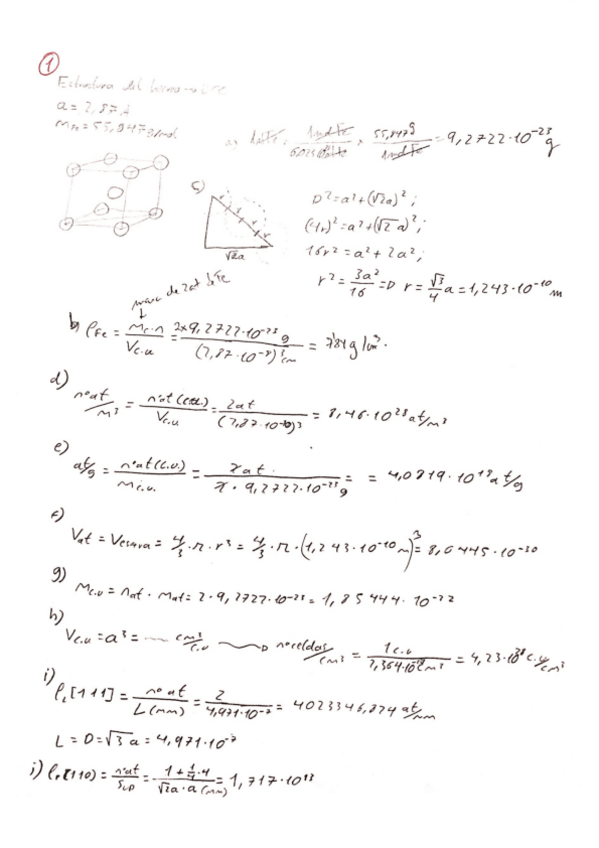 1
Estructura del hierro → BCC
a = 2,87 Å
m = 55,847 g/mol
a) 1 at Fe · 1 mol Fe / 6,023·10²³ at Fe × 55,847 g / 1 mol Fe = 9,2722·10⁻²³ g
c)
√2a
D² = a² + (√2a)² ;
(4r)² = a² + (√2 a)² ;
16r² = a² + 2a² ;
r² = 3a²/16 => r = √3/4 a = 1,243·10⁻¹⁰ m
masa de 2 at de Fe
b) ρFe = Mc·n / Vc.u = 2×9,2722·10⁻²³ g / (2,87·10⁻⁸)³ cm = 7,84 g/cm³.
d)
nº at / m³ = nº at (c.u.) / Vc.u = 2at / (2,87·10⁻¹⁰)³ = 8,46·10²⁸ at/m³
e)
at/g = nº at (c.u.) / Mc.u. = 2 at. / 2 · 9,2722·10⁻²³ g = = 4,0819·10¹⁸ at/g
f)
Vat = Vesfera = 4/3 · π · r³ = 4/3 · π · (1,243·10⁻¹⁰ m)³ = 8,0445·10⁻³⁰
g)
Mc.u = nat · Mat = 2 · 9,2722·10⁻²³ = 1,85444·10⁻²²
h)
Vc.u = a³ = cm³/c.u → nº celdas/cm³ = 1 c.u / 2,364·10⁻²³ cm³ = 4,23·10²² c.u/cm³
i)
ρL [111] = nº at / L (mm) = 2 / 4,971·10⁻⁷ = 4023346,824 at/mm
L = D = √3 a = 4,971·10⁻⁷
j) ρ(110) = nº at / Sup = 1 + 1/4·4 / √2a · a (mm) = 1,717·10¹³